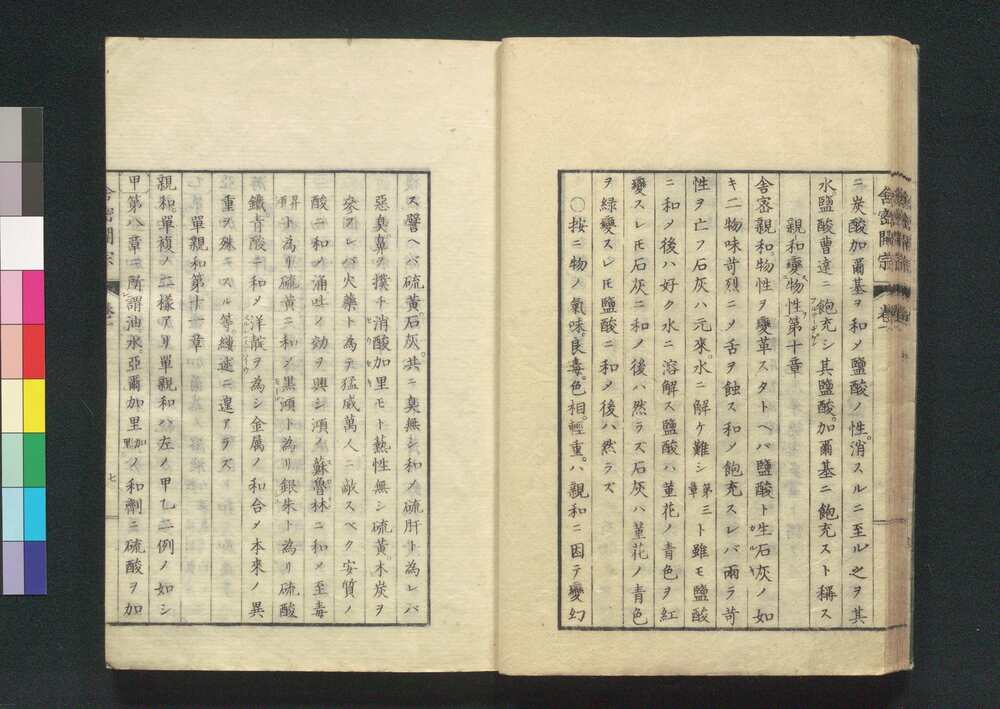 舎密開宗 巻一
ニ炭酸加爾基ヲ和メ鹽酸ノ性。消スルニ至ル之ヲ其
水鹽酸曹達ニ飽充シ其鹽酸。加爾基ニ飽充スト稱ス
親和變物性第十章
舎密親和。物性ヲ變革スタトヘバ。鹽酸ト生石灰ノ如
キ二物味苛烈ニメ舌ヲ蝕ス和メ飽充スレバ兩ラ苛
性ヲ亡フ石灰ハ元來。水ニ解ケ難シ第三章ト雖モ鹽酸
ニ和メ後ハ好ク水ニ溶解ス鹽酸ハ菫花ノ青色ヲ紅
變スレモ石灰ニ和メ後ハ然ラズ石灰ハ菫花ノ青色
ヲ緑變スレモ鹽酸ニ和メ後ハ然ラズ
○按ニ物ノ氣味良毒。色相。輕重。ハ親和ニ因テ變幻
ス譬ヘバ硫黄。石灰。共ニ臭無シ和メ硫肝ト為レバ
惡臭鼻ヲ撲チ消酸加里モト𤍠性無シ硫黄。木炭ヲ
來スレバ火藥ト為テ猛威萬人ニ敵スベク安質ノ
酸ニ和メ涌吐ノ効ヲ興シ澒ノ蘇魯林ニ和メ至毒
昇ト為リ硫黄ニ和シ黒澒ト為リ銀朱ト為リ硫酸
鐵。青酸ニ和メ洋靛ヲ為シ金属ノ和合メ本來ノ異
重ヲ殊ニスル等縷述ニ遑アラズ
單親和第十一章
親和。單複ノ二様アリ單親和ハ左ノ甲乙二例ノ如シ
甲第八章ニ所謂油水。亞爾加里加里ノ和劑ニ硫酸ヲ加
舎密開宗 巻一
七